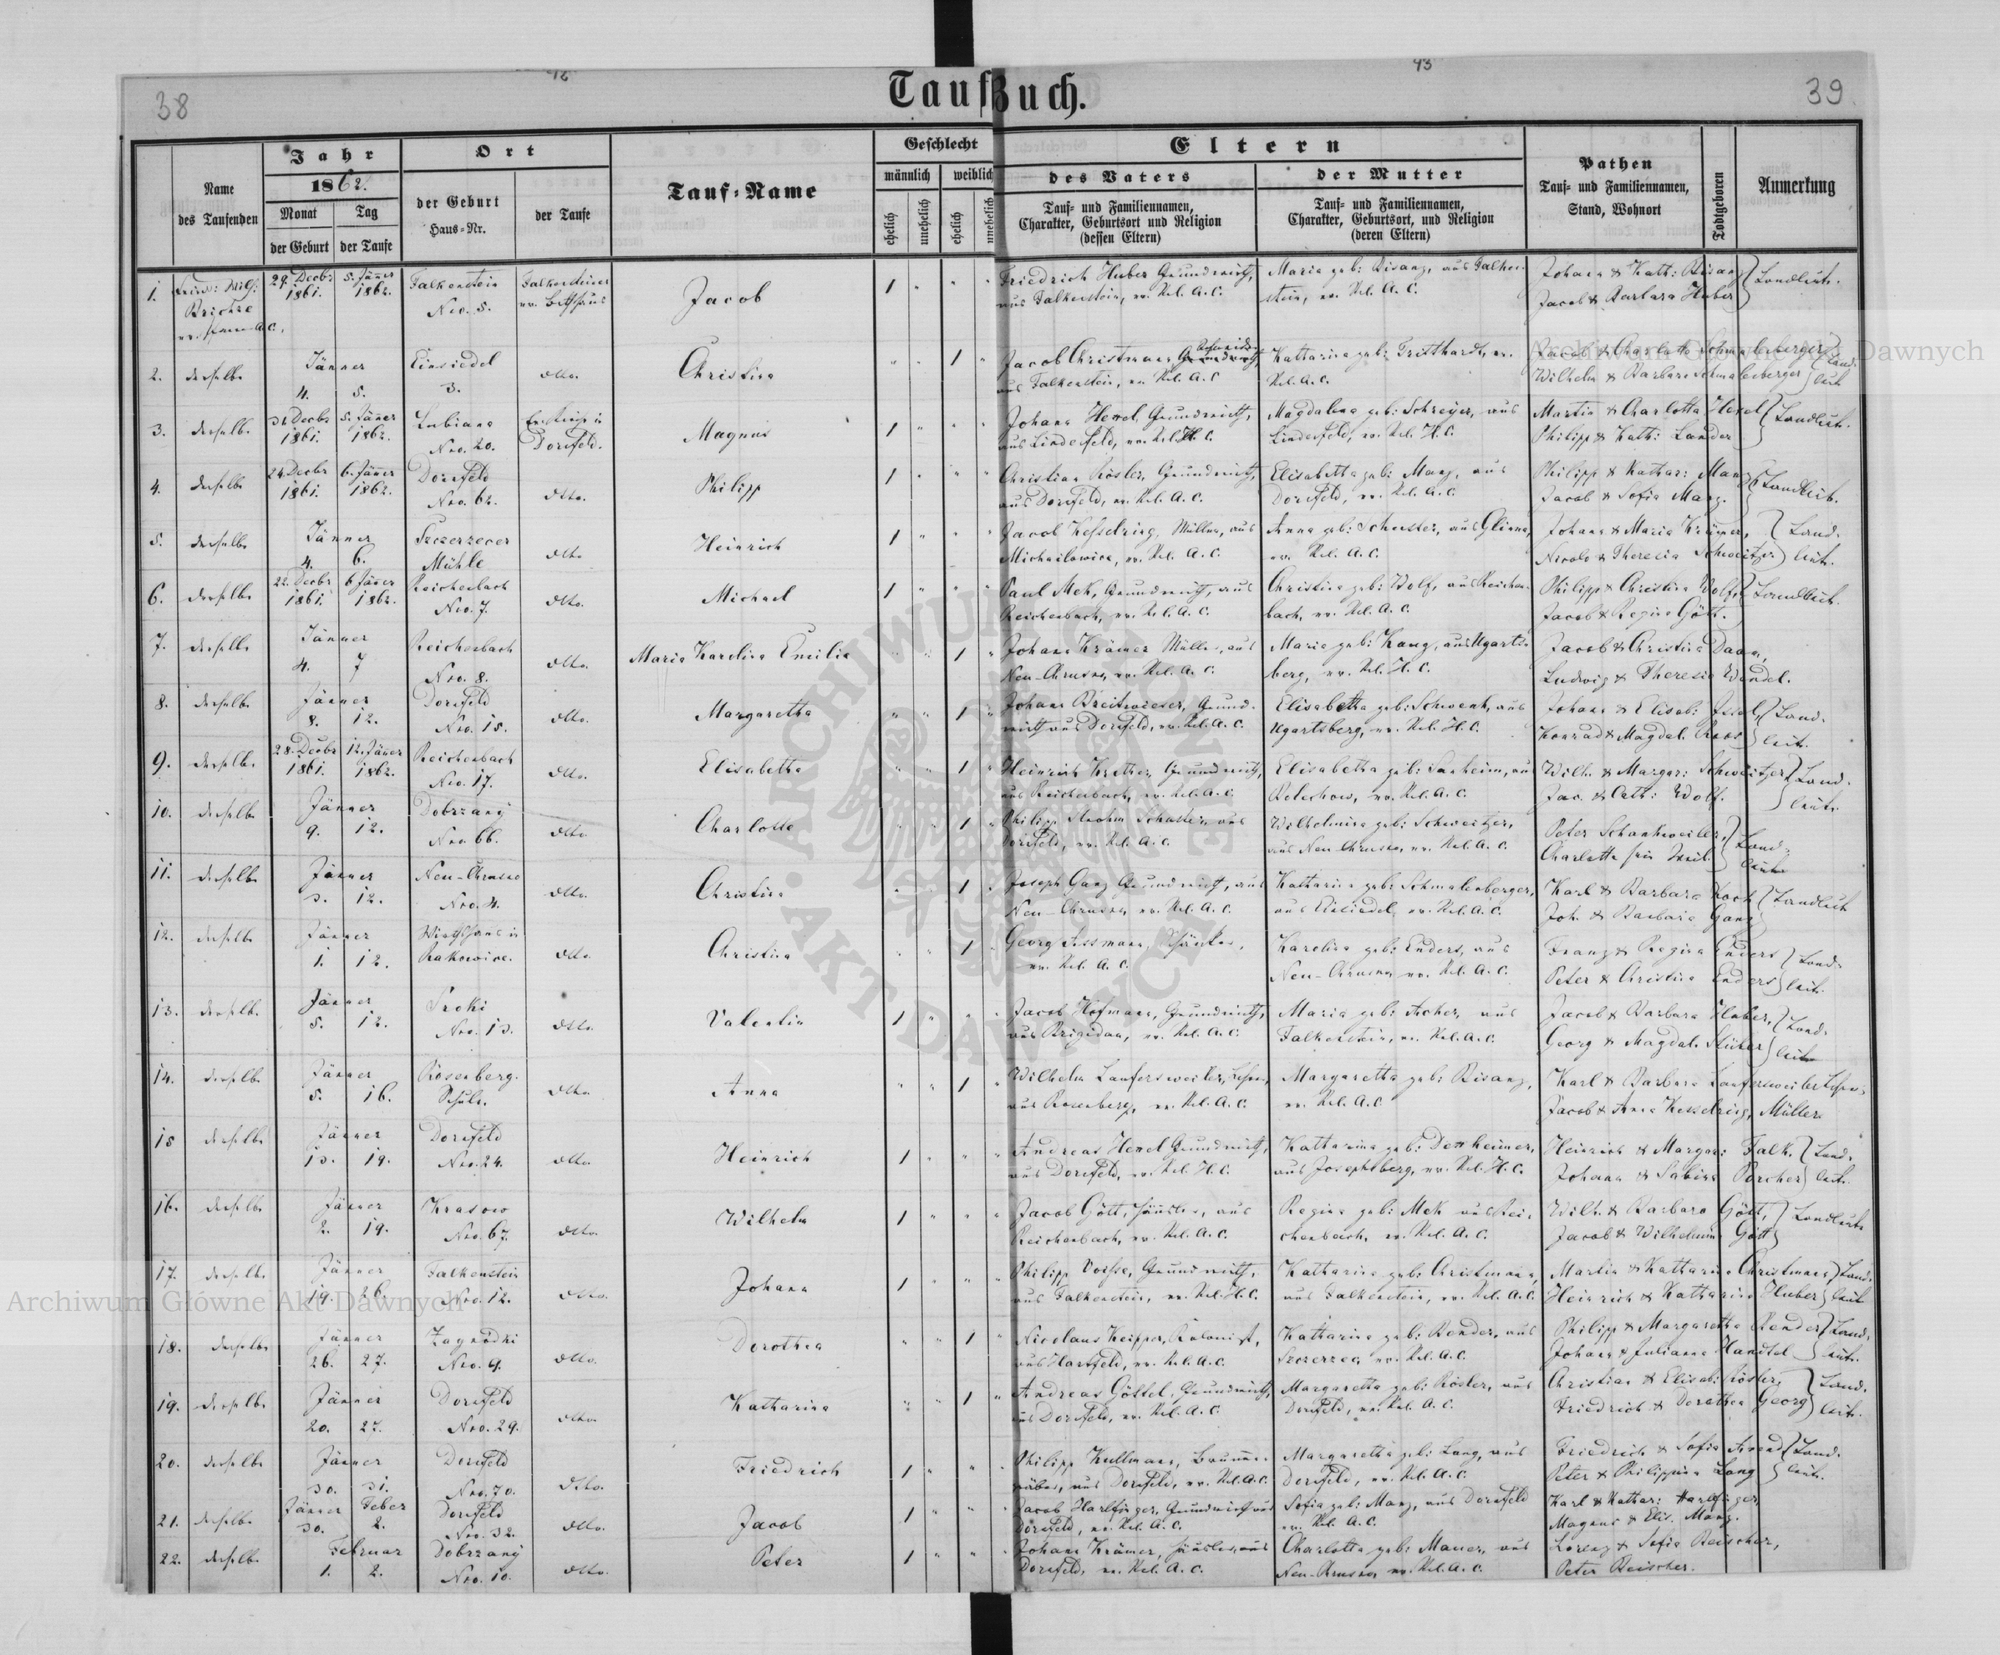 38
Taufbuch.
39
Name des Taufenden
Jahr
1862.
Monat
Tag
der Geburt
der Taufe
Ort
der Geburt
Haus-Nr.
der Taufe
Tauf-Name
Geschlecht
männlich
weiblich
ehelich
unehelich
ehelich
unehelich
Eltern
des Vaters
Tauf- und Familiennamen,
Charakter, Geburtsort und Religion
(dessen Eltern)
der Mutter
Tauf- und Familiennamen,
Charakter, Geburtsort, und Religion
(deren Eltern)
Pathen
Tauf- und Familiennamen,
Stand, Wohnort
Todtgeboren
Anmerkung
1. 29. Decbr 5. Jänner Falkenstein Falkensteiner
1861. 1862. Nro. 5. ev. Bethhaus
Jacob 1
Friedrich Huber Grundwirth,
aus Falkenstein, ev. Rel. A.C.
Maria geb: Bisanz, aus Falken-
stein, ev. Rel. A.C.
Johann & Kath: Bisanz
Jacob & Barbara Huber
Landleute.
2. derselbe Jänner Einsiedel dtto.
4. 5. 3.
Christina 1
Jacob Christmann
aus Falkenstein, ev. Rel. A.C.
Katharina geb: Tritthardt, ev.
Rel. A.C.
Jacob & Charlotte Schmalenberger
Wilhelm & Barbara Schmalenberger
Landleute
3. derselbe 31 Decbr 5. Jänner Lubiana
1861. 1862. Nro. 20. Dornfeld.
Magnus 1
Johann Hexel Grundwirth,
aus Lindenfeld, ev. Rel. H.C.
Magdalena geb: Schreyer, aus
Lindenfeld, ev. Rel. H.C.
Martin & Charlotta Hexel
Philipp & Kath: Lander
Landleute.
4. derselbe 24. Decbr 6. Jänner Dornfeld
1861. 1862. Nro. 62. dtto.
Philipp 1
Christian Rösler, Grundwirth,
aus Dornfeld, ev. Rel. A.C.
Elisabetha geb: Manz, aus
Dornfeld, ev. Rel. A.C.
Philipp & Kathar: Manz
Jacob & Sofia Manz.
Landleute.
5. derselbe Jänner Szczerzecer
4. 6. Mühle dtto
Heinrich 1
Jacob Kesselring, Müller, aus
Michailowice, ev. Rel. A.C.
Anna geb: Schuster, aus Glinna,
ev. Rel. A.C.
Johann & Maria Krämer,
Nicola & Theresia Schweitzer
Landleute.
6. derselbe 22. Decbr 6. Jänner Reichenbach
1861. 1862. Nro. 7. dtto.
Michael 1
Paul Mek, Grundwirth, aus
Reichenbach, ev. Rel. A.C.
Christina geb: Wolf, aus Reichen-
bach, ev. Rel. A.C.
Philipp & Christina Wolf
Jacob & Regina Gött.
Landleute.
7. derselbe Jänner Reichenbach
4. 7 Nro. 8. dtto.
Maria Karolina Emilia 1
Johann Krämer Müller, aus
Neu-Chrusno, ev. Rel. A.C.
Maria geb: Kang, aus Ugarts-
berg, ev. Rel. H.C.
Jacob & Christina Daum,
Ludwig & Theresia Wendel.
8. derselbe Jänner Dornfeld
8. 12. Nro. 15. dtto.
Margaretha 1
Johann Breitwieser, Grund-
wirth aus Dornfeld, ev. Rel. A.C.
Elisabetha geb: Schwenk, aus
Ugartsberg, ev. Rel. H.C.
Konrad & Magdal. Roos
Landleute.
9. derselbe 28. Decbr 12. Jänner Reichenbach
1861. 1862. Nro. 17. dtto.
Elisabetha 1
Heinrich Kreher, Grundwirth,
aus Reichenbach, ev. Rel. A.C.
Elisabetha geb: Sauheim, aus
Rolechow, ev. Rel. A.C.
Wilh. & Margar: Schweitzer
Jac. & Cath: Wolf.
Landleute.
10. derselbe Jänner Dobrzany
9. 12. Nro. 66. dtto.
Charlotte 1
Philipp Strohm Schuster, aus
Dornfeld, ev. Rel. A.C.
Wilhelmina geb: Schweitzer,
aus Neu-Chrusno, ev. Rel. A.C.
Peter Schankweiler,
Charlotta sein Weib.
Landleute
11. derselbe Jänner Neu-Chrusno
3. 12. Nro. 4. dtto.
Christina 1
Joseph Ganz Grundwirth, aus
Neu-Chrusno, ev. Rel. A.C.
Katharina geb: Schmalenberger,
aus Einsiedel, ev. Rel. A.C.
Karl & Barbara Koch
Joh. & Barbara Ganz
Landleute
12. derselbe Jänner Wirthshaus in
1. 12. Rakowice. dtto.
Christina 1
Georg Sissmann, Schänker,
ev. Rel. A.C.
Karolina geb: Enders, aus
Neu-Chrusno, ev. Rel. A.C.
Franz & Regina Enders
Peter & Christina Enders
Landleute.
13. derselbe Jänner Sroki
5. 12. Nro. 13. dtto.
Valentin 1
Jacob Hofmann, Grundwirth,
aus Brigidau, ev. Rel. A.C.
Maria geb: Ascher, aus
Falkenstein, ev. Rel. A.C.
Jacob & Barbara Huber,
Georg & Magdal. Stüber
Landleute
14. derselbe Jänner Rosenberg.
5. 16. Schule. dtto.
Anna 1
Wilhelm Laufersweiler, Lehrer,
aus Rosenberg, ev. Rel. A.C.
Margaretha geb: Bisanz,
ev. Rel. A.C
Karl & Barbara Laufersweiler Lehrer.
Jacob & Anna Kesselring, Müller.
15 derselbe Jänner Dornfeld
13. 19. Nro. 24. dtto.
Heinrich 1
Andreas Hexel Grundwirth,
aus Dornfeld, ev. Rel. H.C.
Katharina geb: Dexheimer,
aus Josephsberg, ev. Rel. H.C.
Heinrich & Margar: Falk
Johann & Sabina Porcher
Landleute.
16. derselbe Jänner Krasow
2. 19. Nro. 67. dtto.
Wilhelm 1
Jacob Gött, Häusler, aus
Reichenbach, ev. Rel. A.C.
Regina geb: Mek aus Rei-
chenbach, ev. Rel. A.C.
Wilh. & Barbara Gött,
Jacob & Wilhelmin Gött
Landleute
17. derselbe Jänner Falkenstein
19. 26. Nro. 12. dtto.
Johann 1
Philipp Grundwirth,
aus Falkenstein, ev. Rel. H.C.
Katharina geb: Christmann,
aus Falkenstein, ev. Rel. A.C.
Martin & Katharina Christmann
Heinrich & Katharina Huber
Landleute
18. derselbe Jänner Zagrodki
26. 27. Nro. 9. dtto.
Dorothea 1
Nicolaus Keipper, Kolonist,
aus Hartfeld, ev. Rel. A.C.
Katharina geb: Bender, aus
Szczerzec, ev. Rel. A.C.
Philipp & Margaretha Bender
Johann & Julianna Hanitel
Landleute.
19. derselbe Jänner Dornfeld
20. 27. Nro. 29. dtto.
Katharina 1
Andreas Göttel, Grundwirth,
aus Dornfeld, ev. Rel. A.C.
Margaretha geb: Rösler, aus
Dornfeld, ev. Rel. A.C.
Christian & Elisab: Rösler,
Friedrich & Dorothea Georg
Landleute.
20. derselbe Jänner Dornfeld
30. 31. Nro. 70. dtto.
Friedrich 1
Philipp Kullmann, Brunnen-
gräber, aus Dornfeld, ev. Rel. A.C.
Margaretha geb: Lang, aus
Dornfeld, ev. Rel. A.C.
Friedrich & Sofia Arend
Peter & Philippina Lang
Landleute.
21. derselbe Jänner Feber Dornfeld
30. 2. Nro. 32. dtto.
Jacob 1
Jacob Harlfinger, Grundwirth aus
Dornfeld, ev. Rel. A.C.
Sofia geb: Manz, aus Dornfeld
ev. Rel. A.C.
Karl & Kathar: Harlfinger,
Magnus & Elis. Manz.
22. derselbe Februar Dobrzany
1. 2. Nro. 10. dtto.
Peter 1
Johann Krämer, Häusler, aus
Dornfeld, ev. Rel. A.C.
Charlotta geb: Mauer, aus
Neu-Chrusno, ev. Rel. A.C.
Lorenz & Sofia Reischer,
Peter Reischer.
Archiwum Główne Akt Dawnych
Archiwum Główne Akt Dawnych
ARCHIWUM GŁÓWNE AKT DAWNYCH